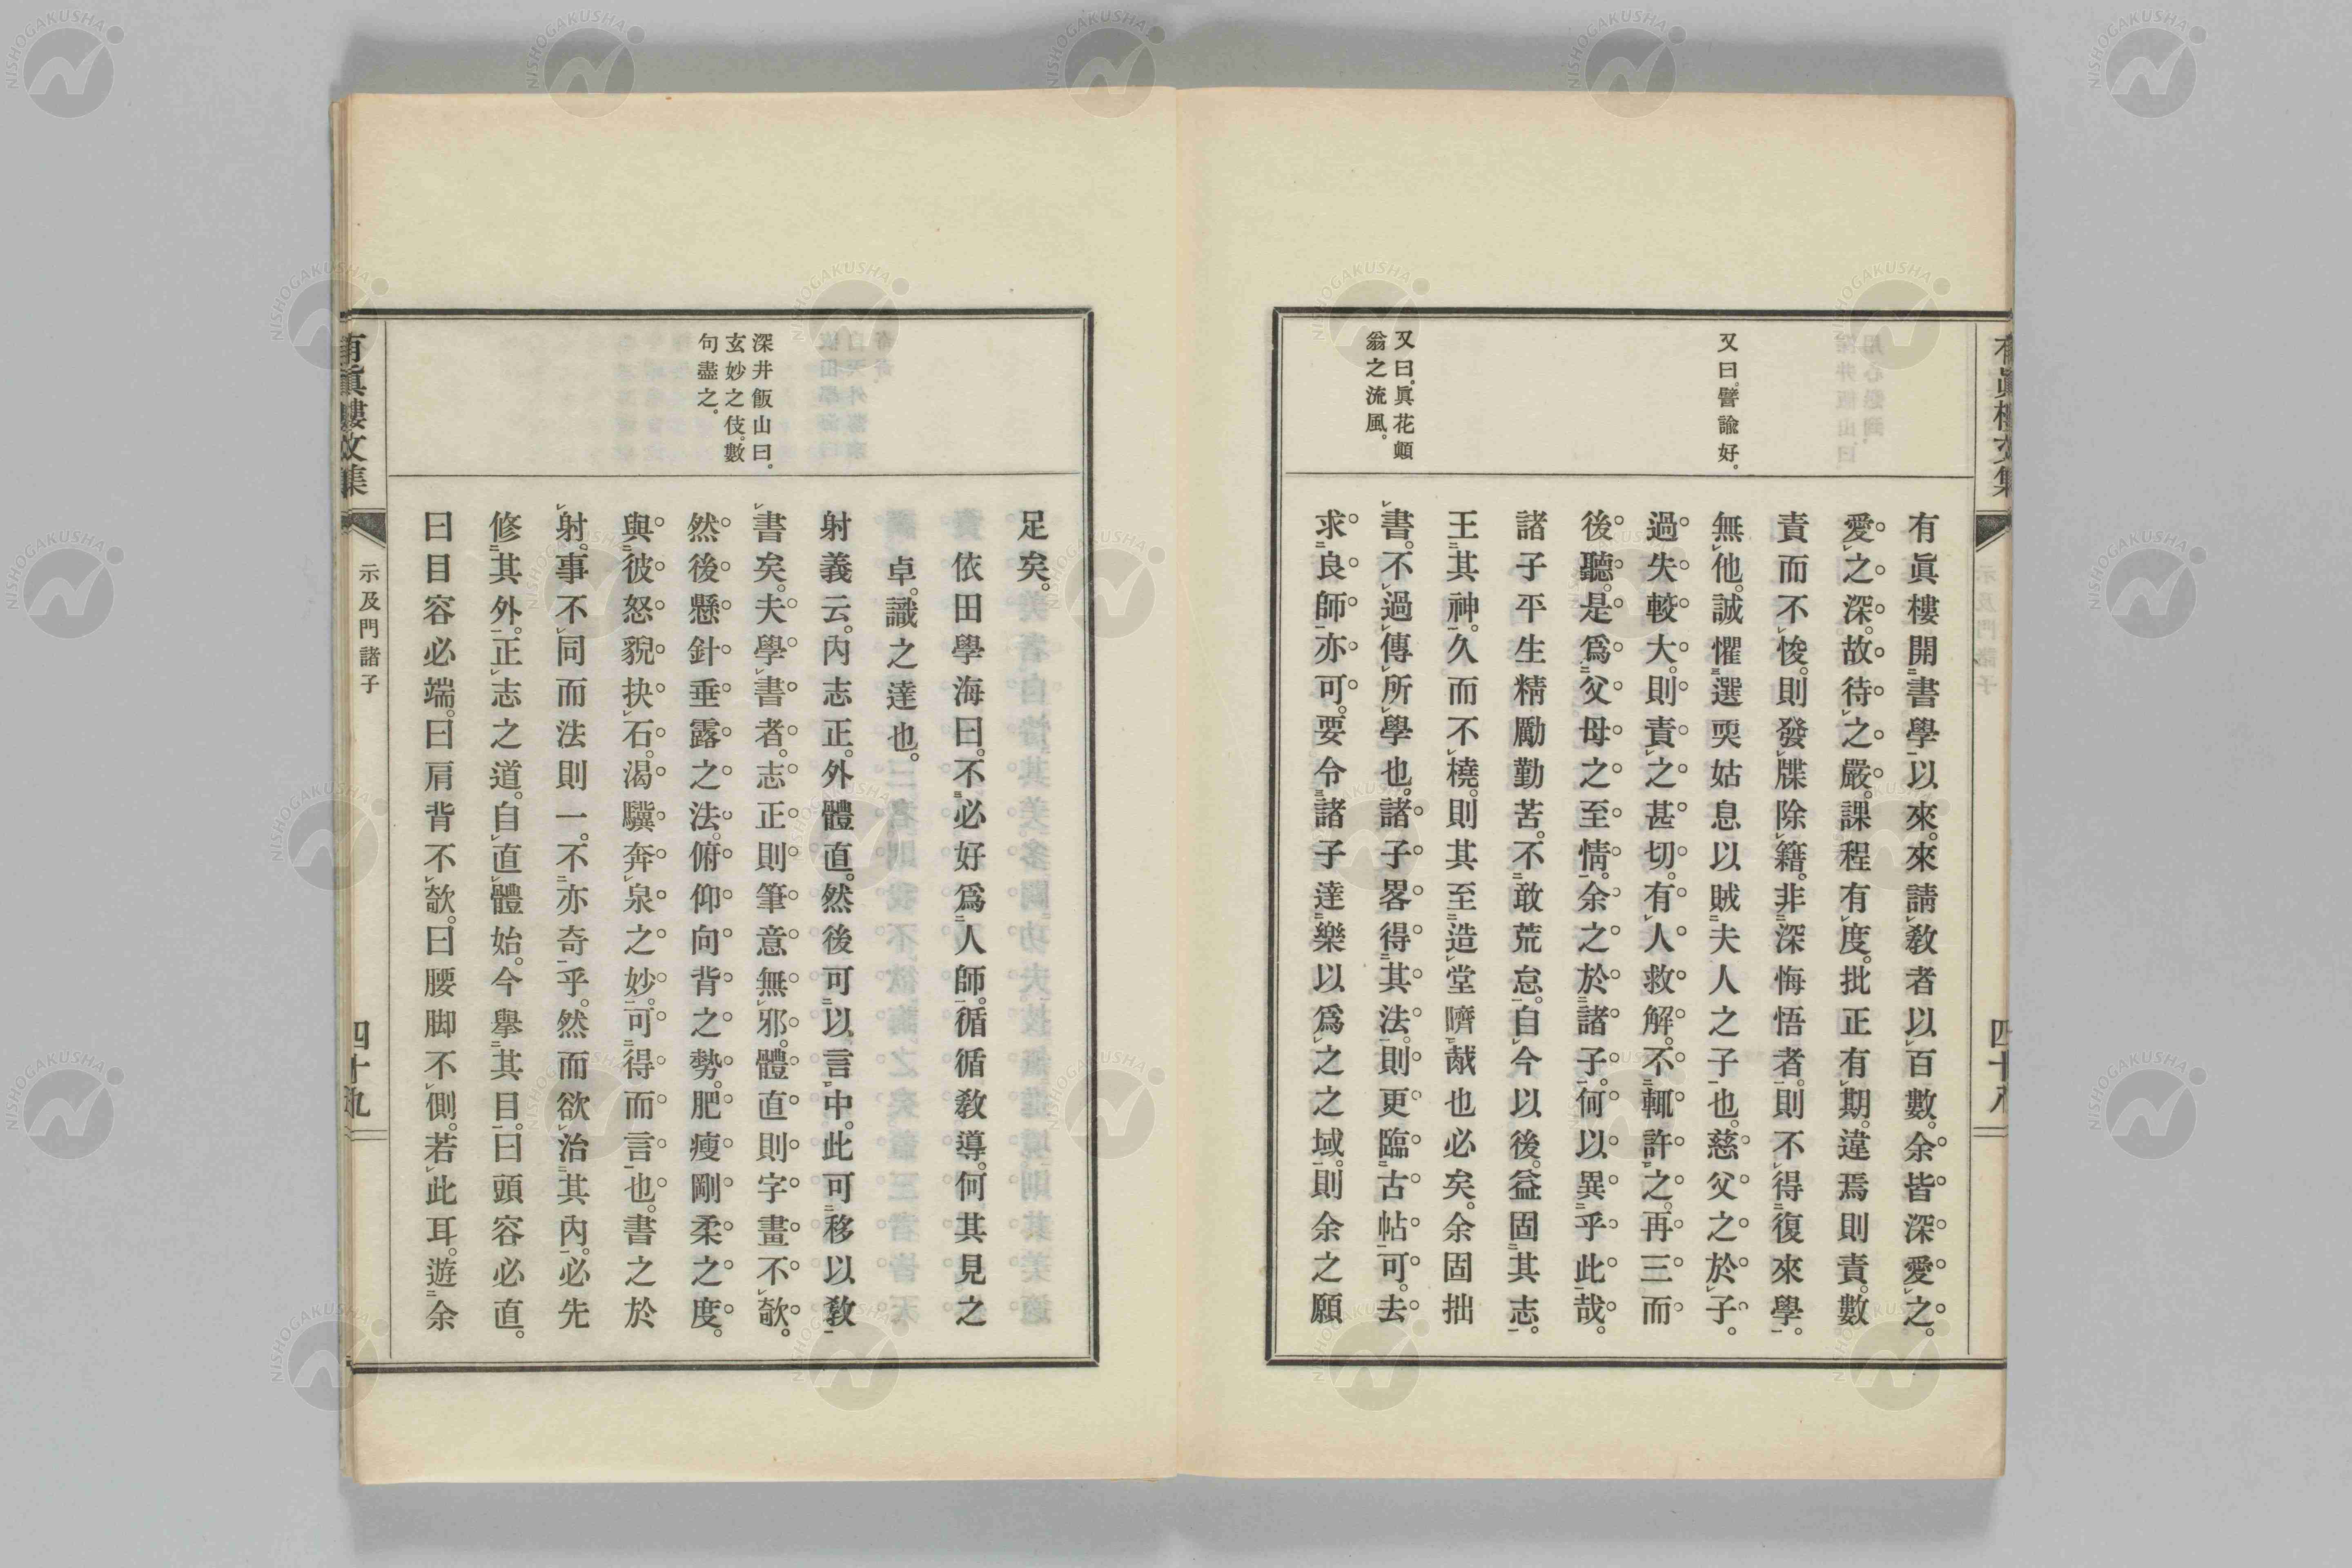 有眞樓文集
示及門諸子
四十八
又曰。譬諭好。
又曰。眞花顚
翁之流風。
有眞樓開書學以來。來請敎者以百數。余皆深愛之。
愛之深。故待之嚴。課程有度。批正有期。違焉則責。數
責而不悛。則發牒除籍。非深悔悟者。則不得復來學。
無他。誠懼選耎姑息以賊夫人之子也。慈父之於子。
過失較大。則責之甚切。有人救解。不輒許之。再三而
後聽。是爲父母之至情。余之於諸子。何以異乎此哉。
諸子平生精勵勤苦。不敢荒怠。自今以後。益固其志。
王其神。久而不橈。則其至造堂嚌胾也必矣。余固拙
書。不過傳所學也。諸子畧得其法。則更臨古帖可。去
求良師亦可。要令諸子達樂以爲之之域。則余之願
足矣。
依田學海曰。不必好爲人師。循循敎導。何其見之
卓。識之達也。
射義云。內志正。外體直。然後可以言中。此可移以敎
書矣。夫學書者。志正則筆意無邪。體直則字畫不欹。
然後懸針垂露之法。俯仰向背之勢。肥瘦剛柔之度。
與彼怒猊抉石。渴驥奔泉之妙。可得而言也。書之於
射。事不同而法則一。不亦奇乎。然而欲治其內。必先
修其外。正志之道。自直體始。今擧其目。曰頭容必直。
曰目容必端。曰肩背不欹。曰腰脚不側。若此耳。遊余
深井飯山曰。
玄妙之伎。數
句盡之。
有眞樓文集
示及門諸子
四十九